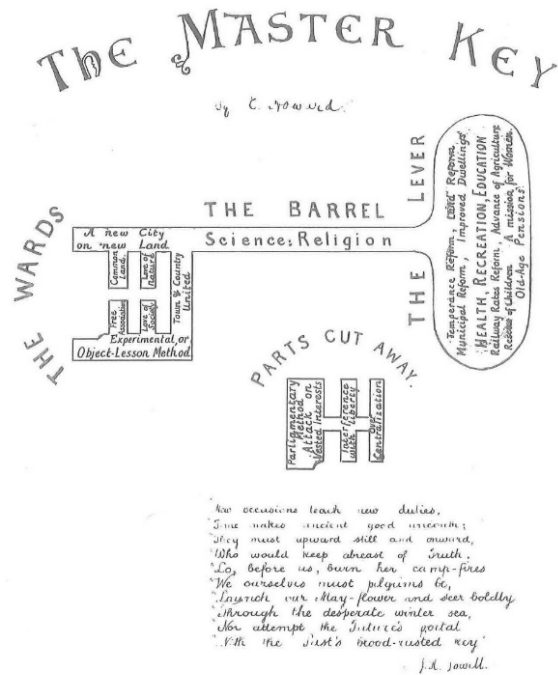 The MASTER KEY
by E. Howard.
THE WARDS
THE BARREL
THE LEVER
A new City
on new Land
Science; Religion
Common Land,
Love of Nature
Free Association
Love of Society
Town & Country
United
Experimental, or
Object-Lesson Method
Temperance Reform, Land Reform
Municipal Reform, Improved Dwellings
HEALTH, RECREATION, EDUCATION
Railway Rates Reform, Advance of Agriculture
Rescue of Children A mission for Women.
Old-Age Pensions
PARTS CUT AWAY.
Parliamentary
Method
Attack on
Vested Interests
Interference
with liberty
Over
Centralization
New occasions teach new duties,
Time makes ancient good uncouth;
They must upward still and onward,
Who would keep abreast of Truth.
Lo, before us, burn her camp-fires
We ourselves must pilgrims be,
Launch our May-flower and steer boldly
Through the desperate winter sea,
Nor attempt the Future's portal
With the Past's blood-rusted key
J.R. Lowell.